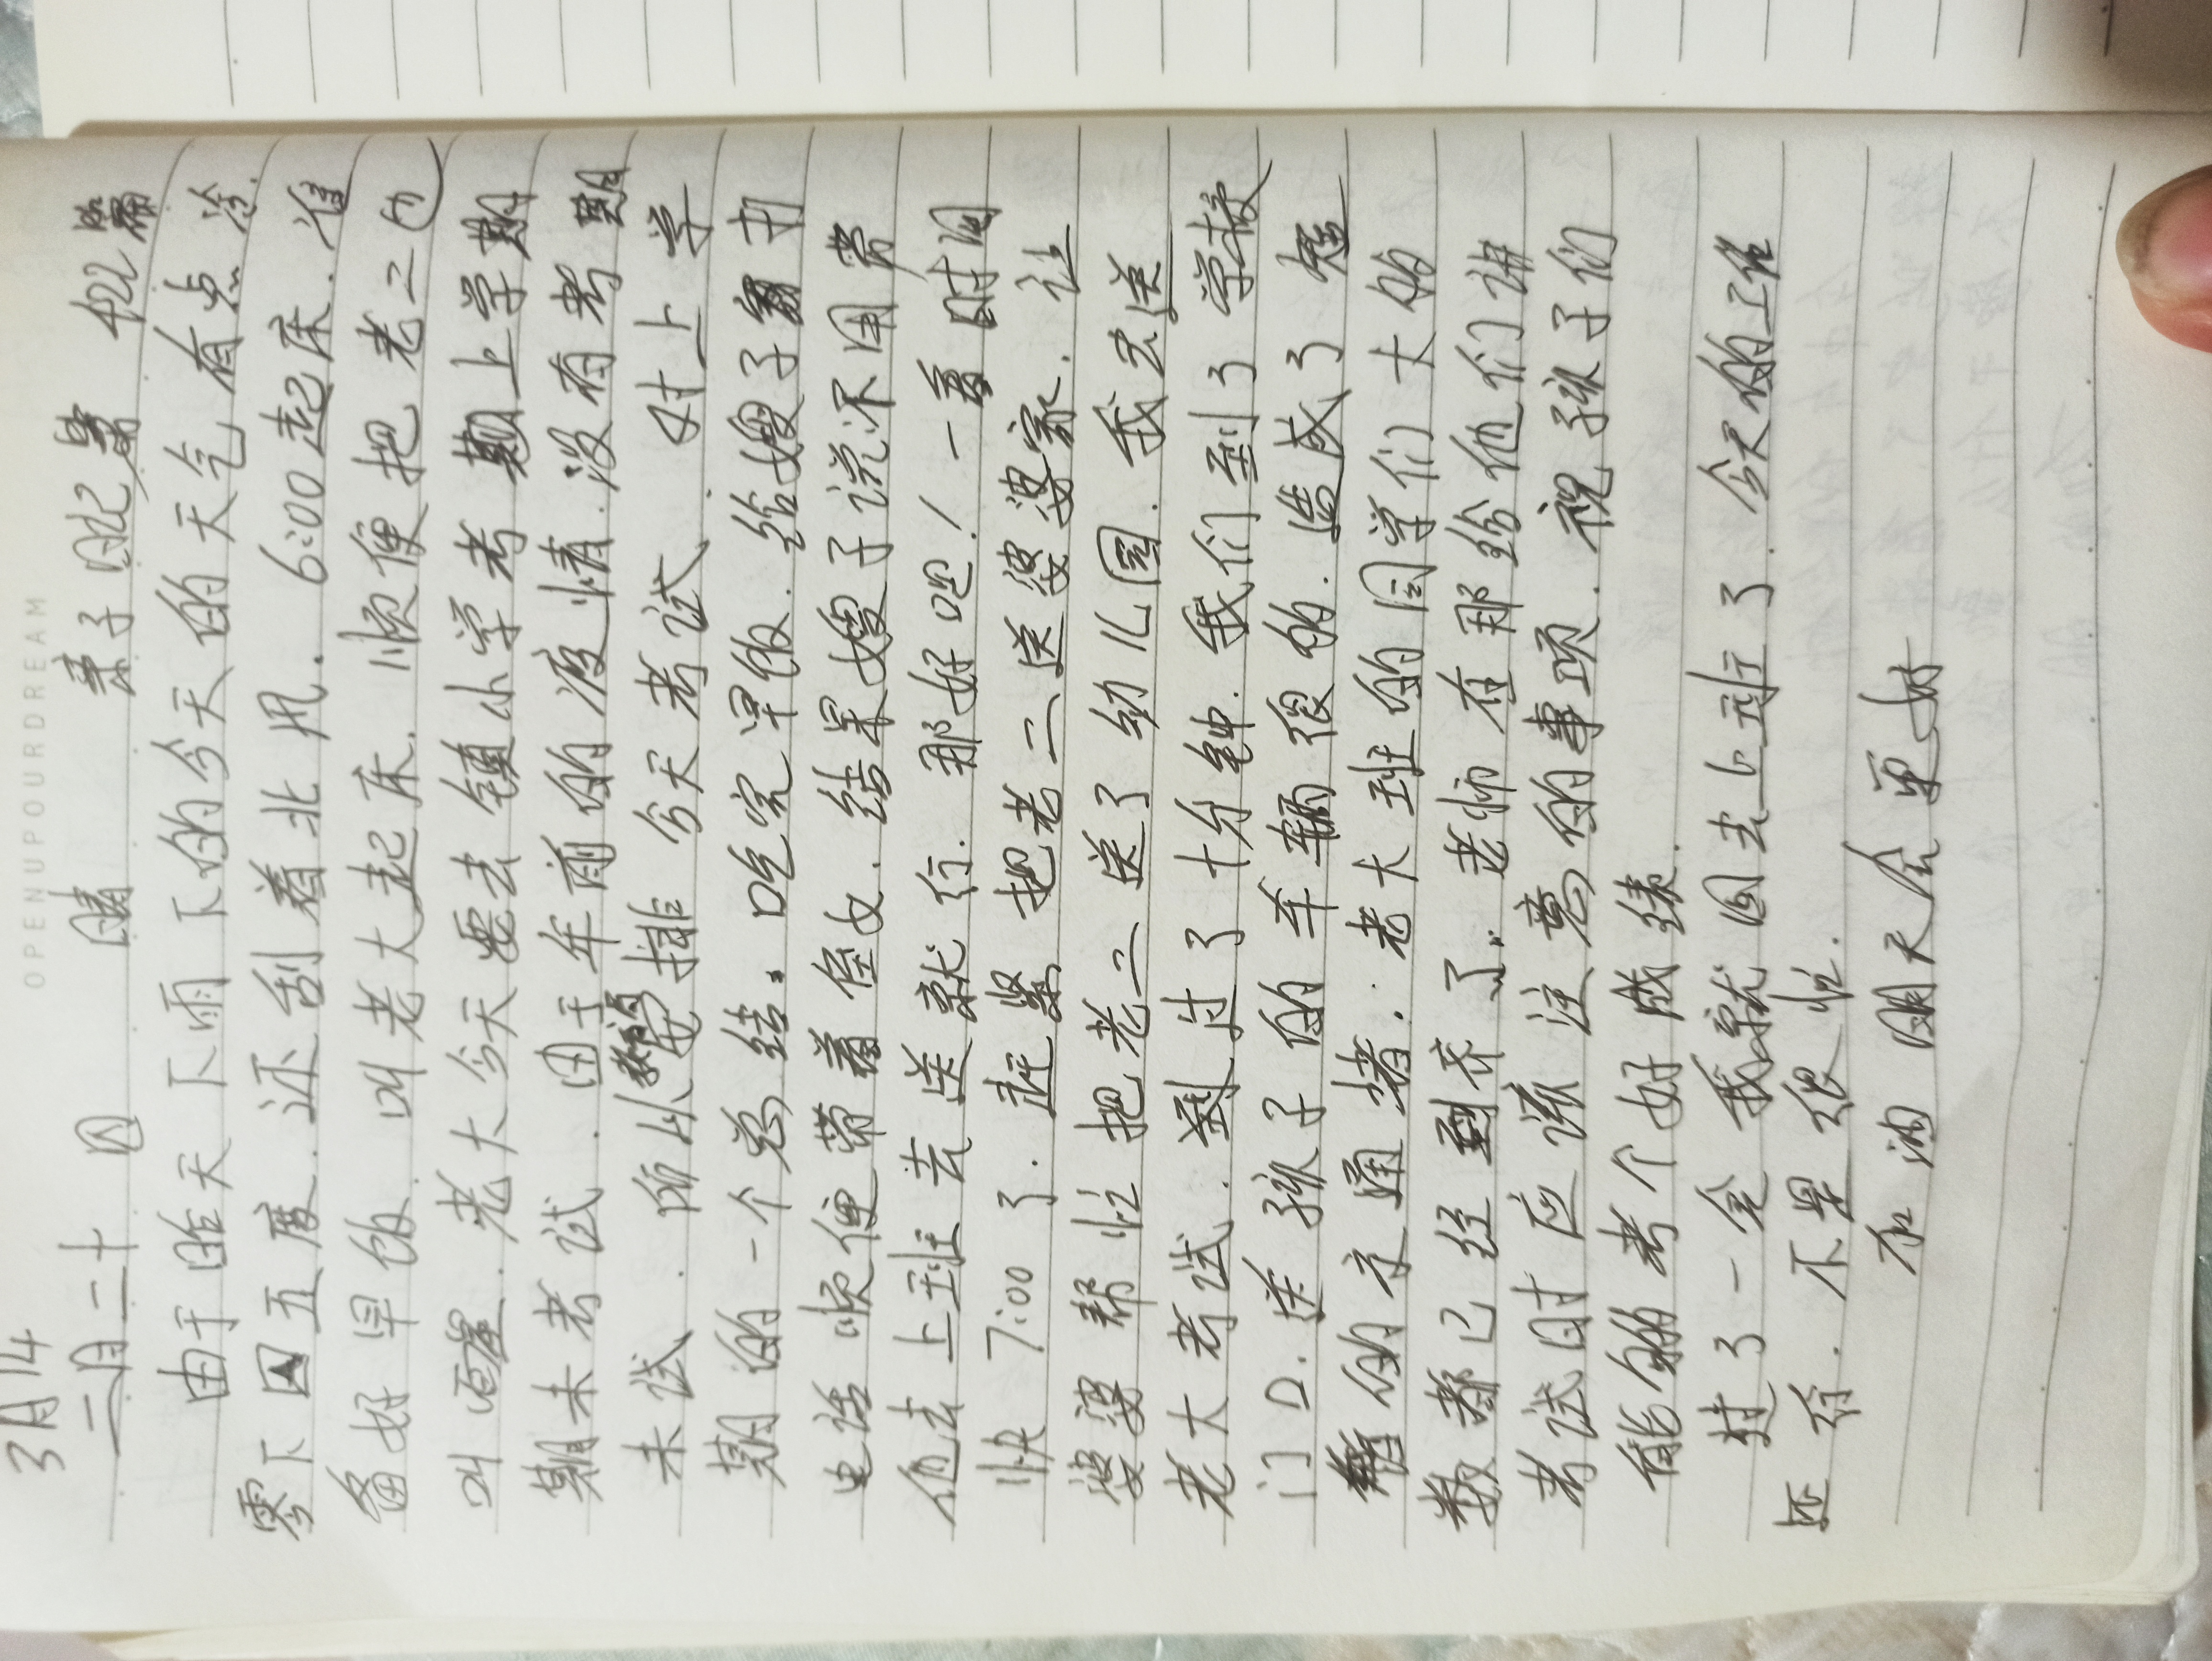 OPENUPOURDREAM
3月14
二月二十 四 晴 亲子日记 422篇
由于昨天下雨下的今天的天气有点冷.
零下四五度.还刮着北风.6:00起床.准
备好早饭.叫老大起床.顺便把老二也
叫醒.老大今天要去镇小学考期上学期
期末考试.由于年前的疫情.没有考期
末试.所以安排今天考试、对上学
期的一个总结.吃完早饭.给嫂子打
电话顺便带着侄女.结果嫂子说不用带
他去上班去送就行.那好吧!一看时间
快7:00了.赶紧把老二送婆婆家.让
婆婆帮忙把老二送了幼儿园.我去送
老大考试.到过了十分钟.我们到了学校
门口.送孩子的车辆很多的.造成了短
暂的交通堵.老大班的同学们大的
数都已经到齐了.老师在那给他们讲
考试时应该注意的事项.祝孩子们
能够的考个好成绩.
过了一会我就回去上班了.今天的工作
还行.不是很忙.
加油明天会更好